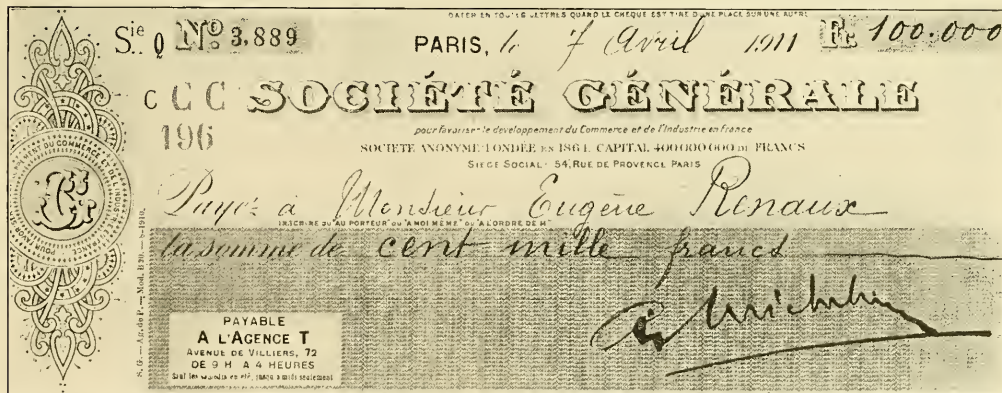 DATER EN TOUTES LETTRES QUAND LE CHEQUE EST TIRÉ D'UNE PLACE SUR UNE AUTRE
Sie Q Nº 3,889 PARIS, le 7 Avril 1911 F. 100.000
C C C SOCIÉTÉ GÉNÉRALE
196
pour favoriser le développement du Commerce et de l'Industrie en France
SOCIÉTÉ ANONYME FONDÉE EN 1864. CAPITAL 400.000.000 DE FRANCS
SIÈGE SOCIAL: 54, RUE DE PROVENCE, PARIS
Payez à Monsieur Eugène Renaux
INSCRIRE ou "AU PORTEUR" ou "A MOI MÊME" ou "A L'ORDRE DE M"
la somme de cent mille francs
Michelin
PAYABLE
A L'AGENCE T
AVENUE DE VILLIERS, 72
DE 9 H A 4 HEURES